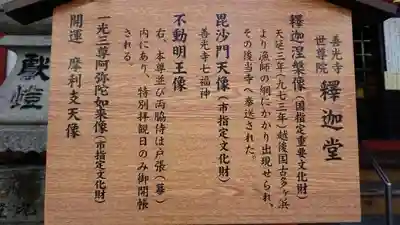 善光寺
世尊院
釋迦堂
釋迦涅槃像(国指定重要文化財)
天延三年(九七三年)越後国古多ヶ浜
より漁師の網にかかり出現せられ、
その後当寺へ奉送された。
毘沙門天像(市指定文化財)
善光寺七福神
不動明王像
右、本尊並び両脇侍は戸張(幕)
内にあり、特別拝観日のみ御開帳
される。
一光三尊阿弥陀如来像(市指定文化財)
開運 摩利支天像
献燈